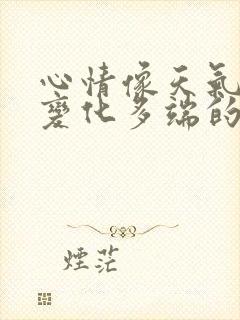 心情像天氣
變化多端的
煙茫